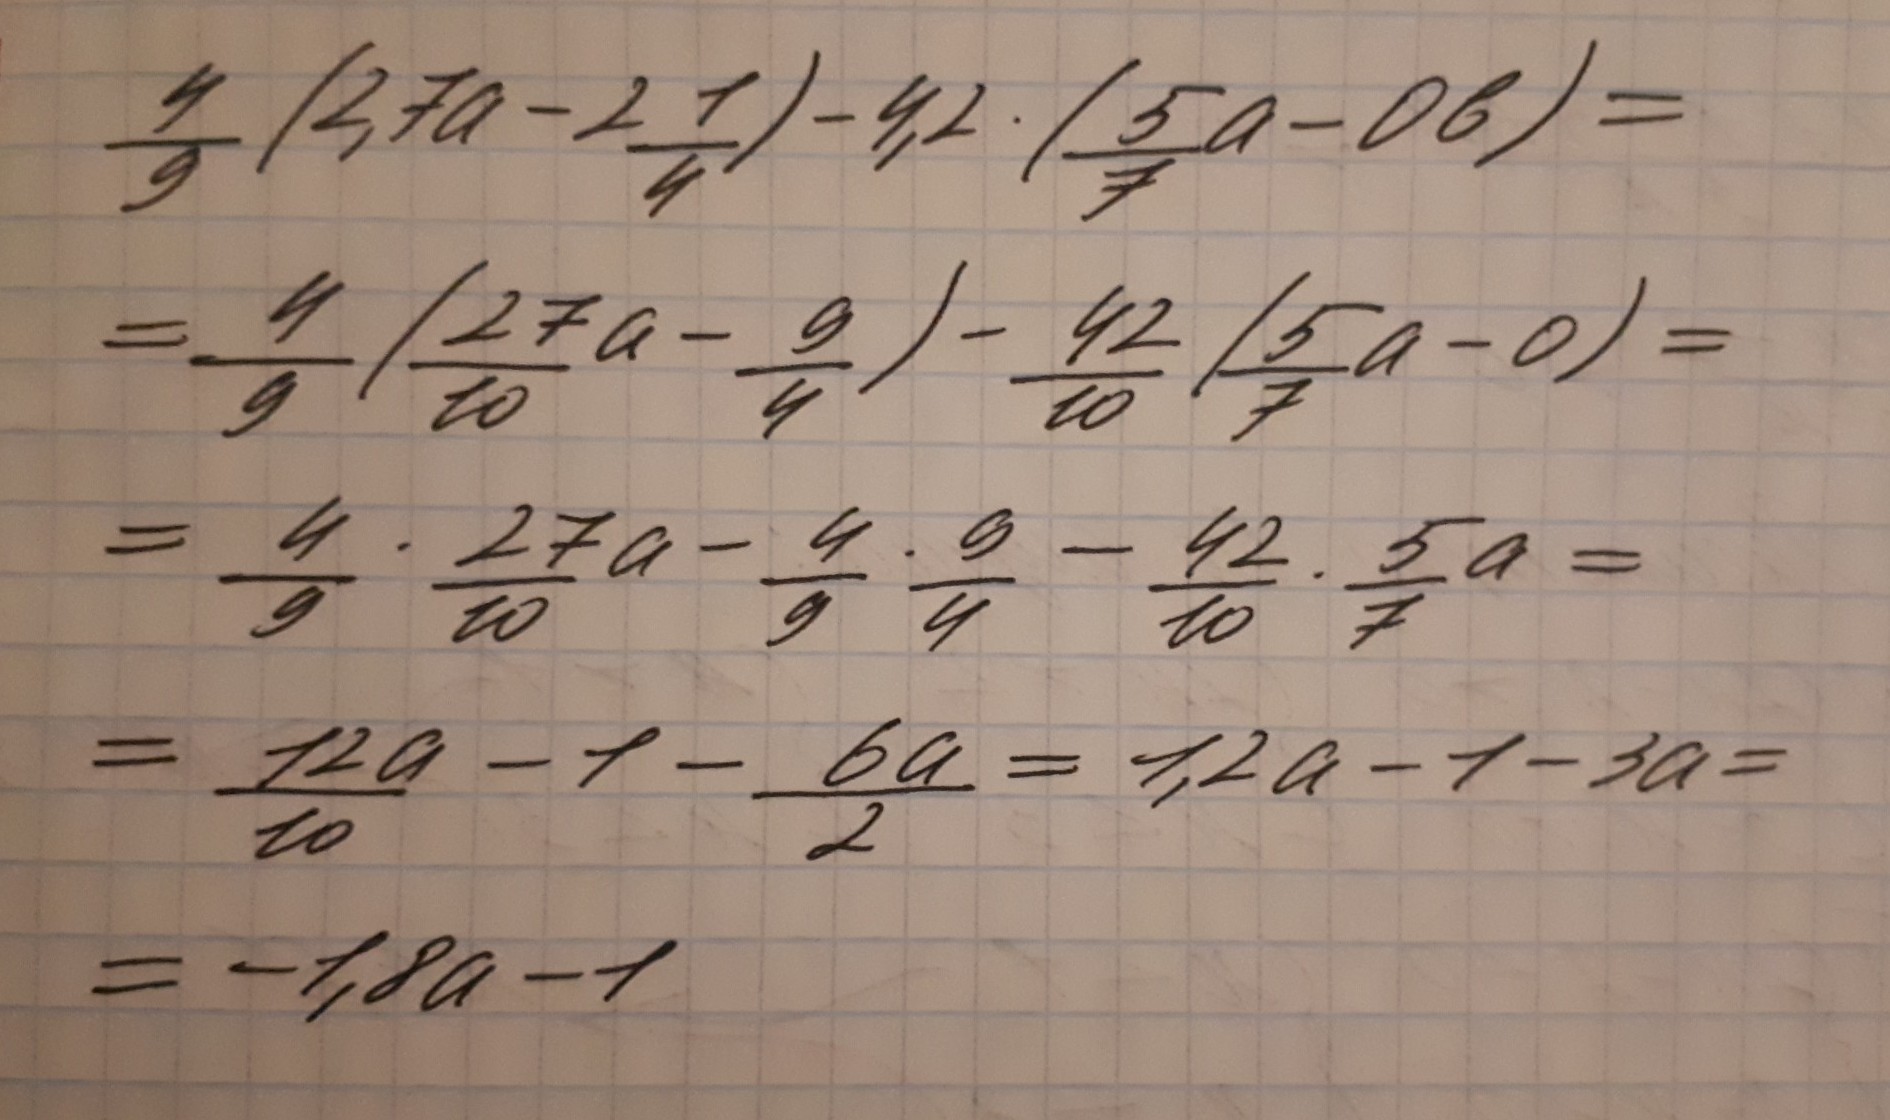 4/9 (2,7a - 2 1/4) - 4,2 · (5/7 a - 0в) =
= 4/9 (27/10 a - 9/4) - 42/10 (5/7 a - 0) =
= 4/9 · 27/10 a - 4/9 · 9/4 - 42/10 · 5/7 a =
= 12a/10 - 1 - 6a/2 = 1,2a - 1 - 3a =
= -1,8a - 1